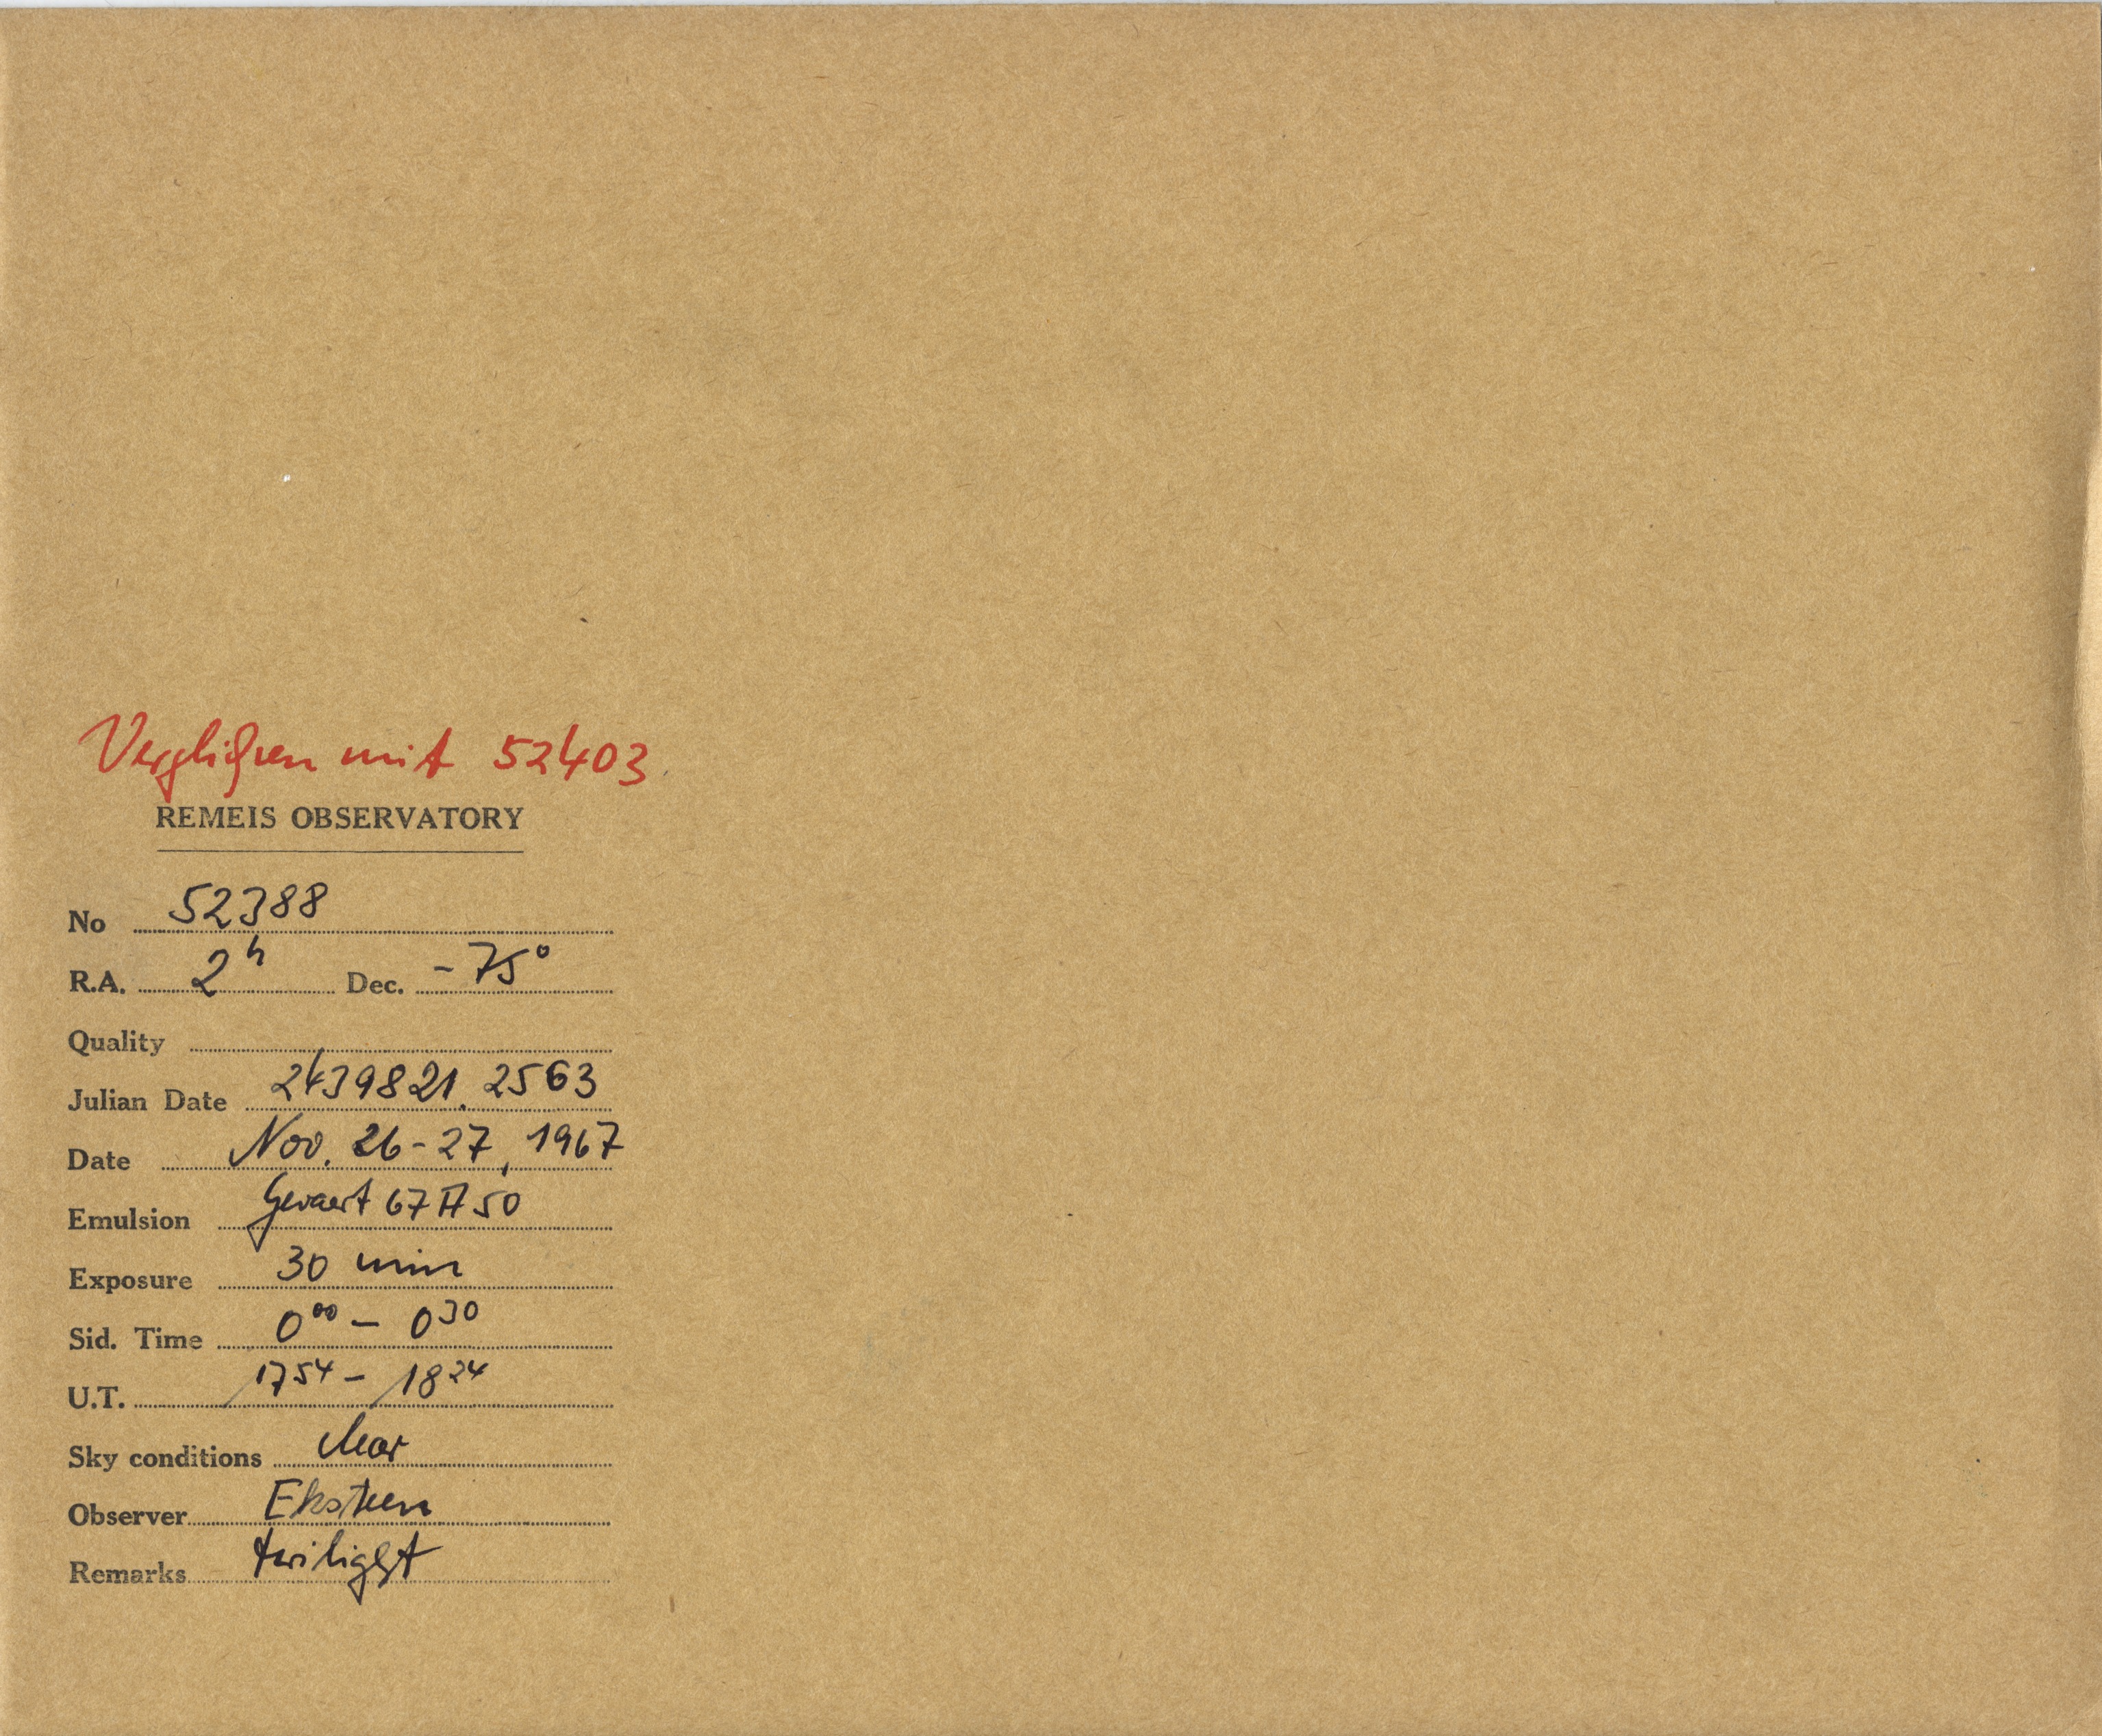 Verglichen mit 52403
REMEIS OBSERVATORY
No 52388
R.A. 2h Dec. -75°
Quality
Julian Date 2439821.2563
Date Nov. 26-27, 1967
Emulsion Gevaert 67 A 50
Exposure 30 min
Sid. Time 0 00 – 0 30
U.T. 17 54 – 18 24
Sky conditions clear
Observer Eksteen
Remarks twilight